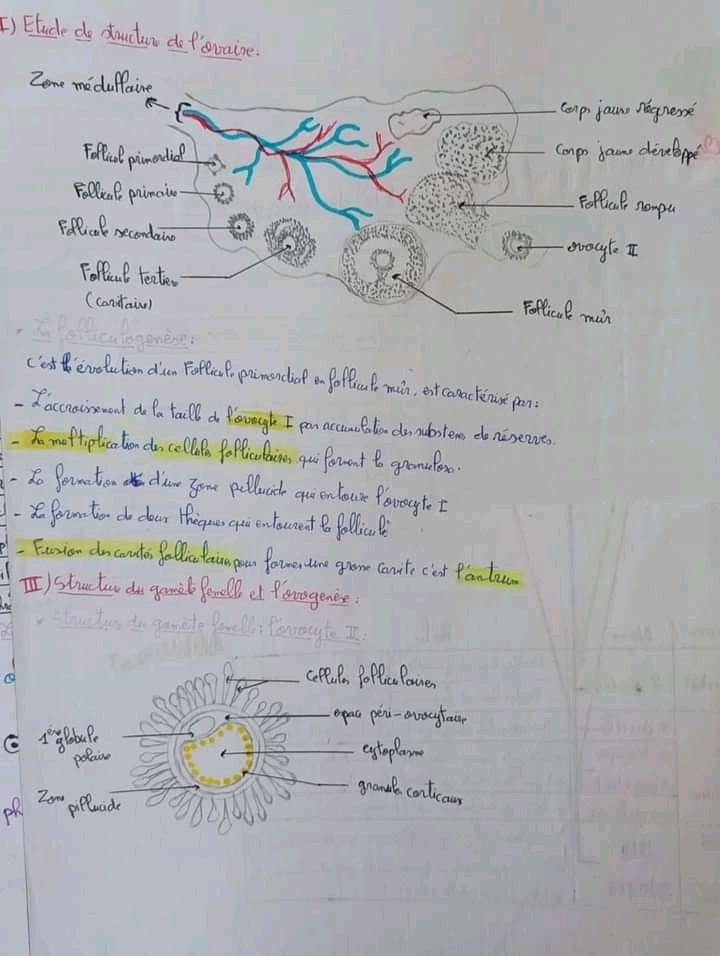 I) Etude de structure de l'ovaire.
Zone médullaire
Corps jaune régressé
Follicul primordial
Corps jaune développé
Follicule primaire
Follicule rompu
Follicule secondaire
ovocyte II
Follicule tertier
(cavitaire)
Follicule mûr
La folliculogenèse:
C'est l'évolution d'un Follicule primordial en follicule mûr, est caractérisé par:
- L'accroissement de la taille de l'ovocyte I par accumulation des substens de réserves.
- La multiplication des cellules folliculaires qui forment la granulosa.
- La formation d'une zone pellucide qui entoure l'ovocyte I
- La formation de deux thèques qui entourent la folliculè
- Fusion des cavités folliculaires pour former une grosse cavite c'est l'antrum
III) Structure du gamète femelle et l'ovogenèse:
Structure du gamète femelle: l'ovocyte II:
cellules folliculaires
espace péri-ovocytaire
1ère globule
polaire
cytoplasme
granules corticaux
Zone pellucide
ph